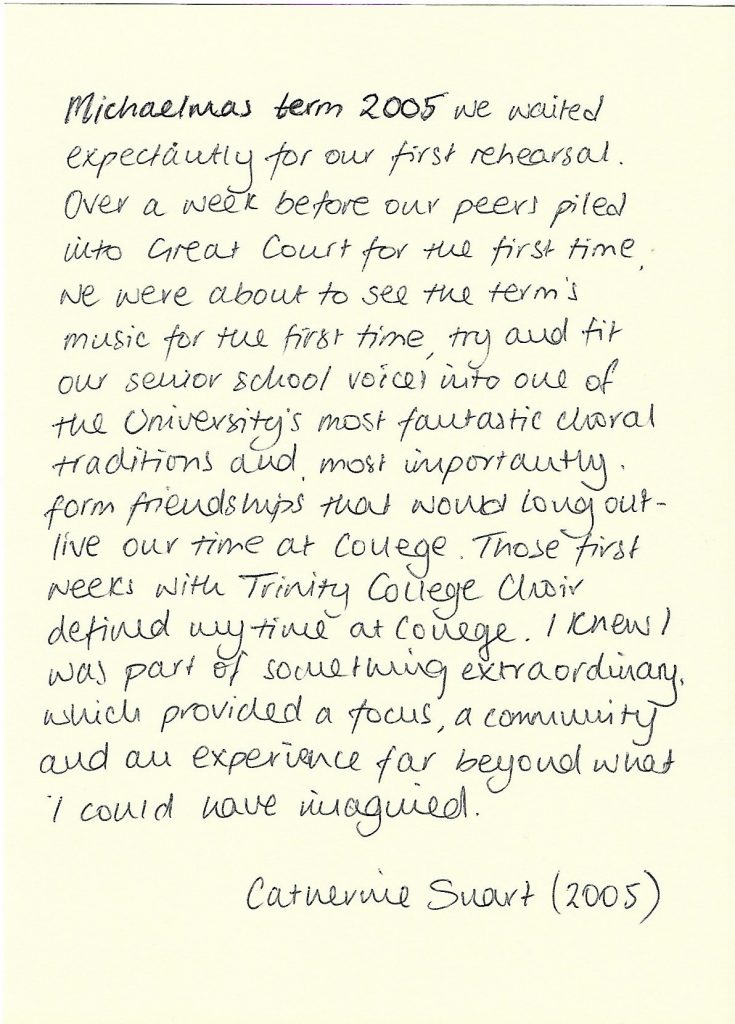 Michaelmas term 2005 we waited
expectantly for our first rehearsal.
Over a week before our peers piled
into Great Court for the first time,
we were about to see the term's
music for the first time, try and fit
our senior school voices into one of
the University's most fantastic choral
traditions and, most importantly,
form friendships that would long out-
live our time at College. Those first
weeks with Trinity College Choir
defined my time at College. I knew I
was part of something extraordinary,
which provided a focus, a community
and an experience far beyond what
I could have imagined.
Catherine Suart (2005)